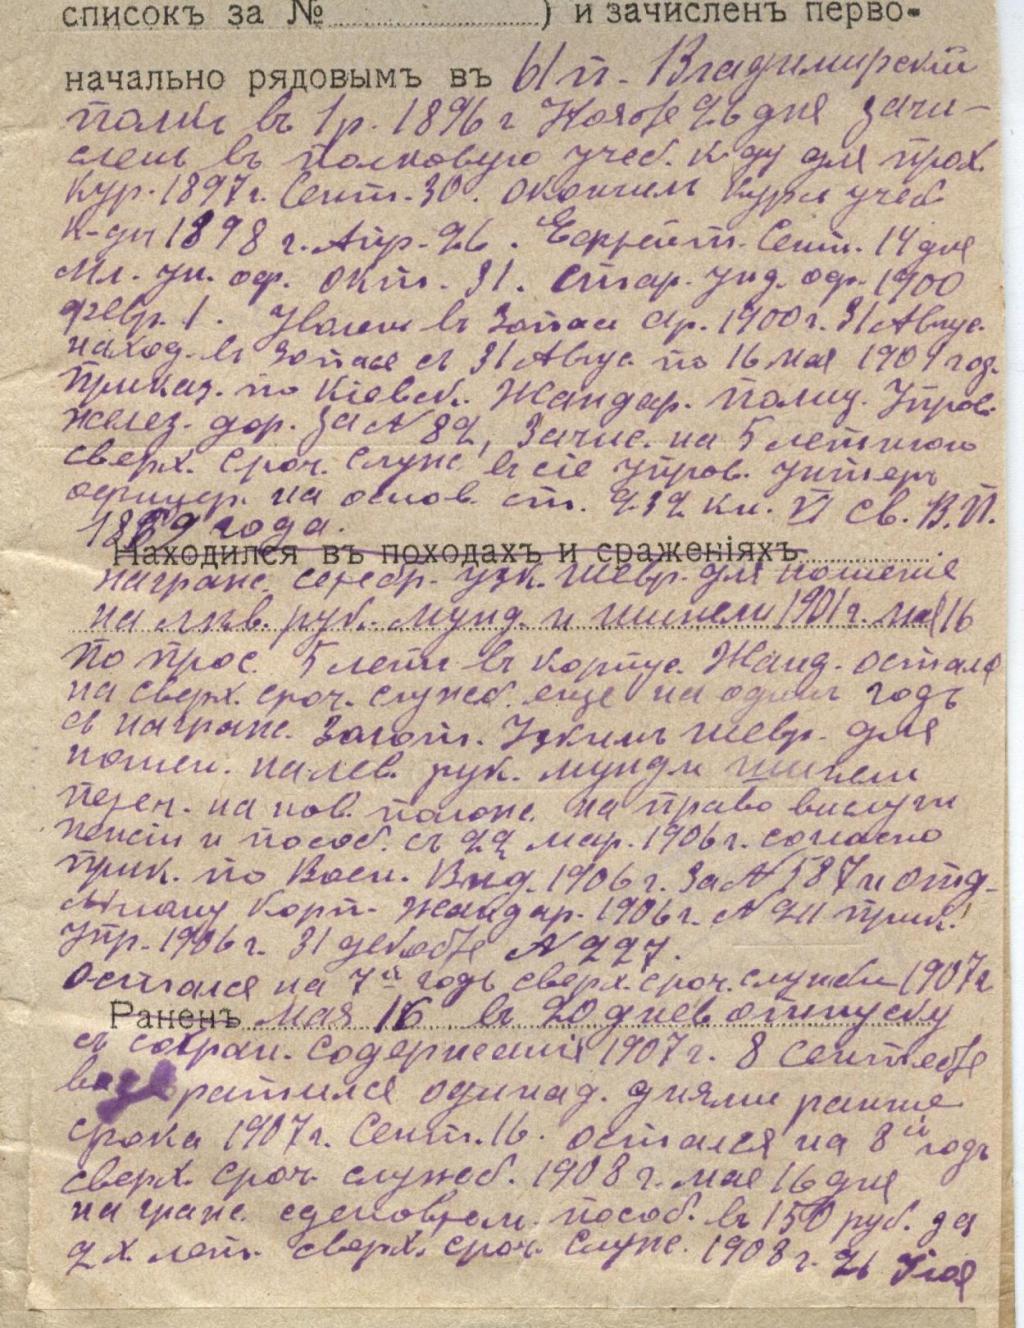 списокъ за № ) и зачисленъ перво-
начально рядовымъ въ 61 п. Владимирскій
полкъ въ 1 р. 1896 г Ноябр 26 дня зачи-
сленъ въ полковую учеб. к-ду для прох.
кур. 1897 г. Сент. 30. окончилъ курсъ учеб
к-ды 1898 г. Апр. 26. Ефрейт. Сент. 14 дня
Мл. ун. оф. Окт. 31. Стар. унд. оф. 1900
февр. 1. Уволен въ Запас ар. 1900 г. 31 Авгус.
наход. въ Запасе съ 31 Авгус. по 16 мая 1901 год.
Приказ. по Кіевск. Жандар. полиц. Управ.
желез. дор. За N 82, Зачис. на 5 летнюю
сверх. сроч. служ. въ сіе управ. унтеръ
офицер. на основ. ст. 232 кн. VI Св. В. П.
1869 года.
Находился въ походахъ и сраженіяхъ
награж. серебр. узк. шевр. для ношенія
на лѣв. рук. мунд. и шинели 1901 г. мая 16
По прос. 5 летъ въ корпус. Жанд. осталс
на сверх. сроч. служб. еще на одинъ годъ
съ награж. Золот. Узкимъ шевр. для
ношен. на лев. рук. мунд и шинели
перен. на нов. полож. на право выслуги
пенсіи и пособ. съ 22 мар. 1906 г. согласно
прик. по Воен. Вѣд. 1906 г. За N 187 и отд-
ѣльному Корп. Жандар. 1906 г. N 211 прик.
Упр. 1906 г. 31 декабр N 227.
Остался на 7й годъ сверх. сроч. службы 1907 г
Раненъ мая 16 въ 20 днев отпуску
съ сохран. содержанія 1907 г. 8 Сентябр
возвратился одинад. днями раннше
срока 1907 г. Сент. 16. остался на 8й годъ
сверх. сроч. служб. 1908 г. мая 16 дня
награж. единоврем. пособ. въ 150 руб. за
2х лет. сверх. сроч. служ. 1908 г. 26